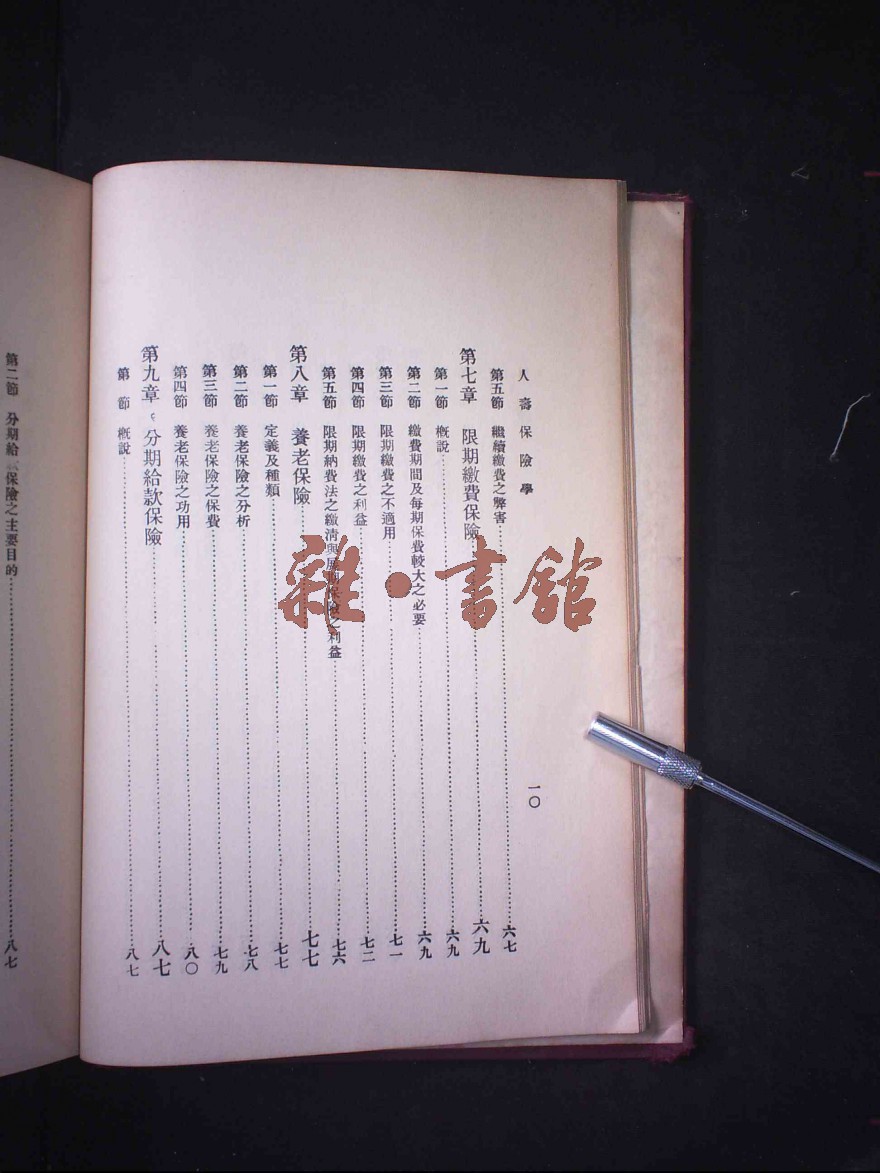 人壽保險學
一〇
第五節 繼續繳費之弊害 六七
第七章 限期繳費保險 六九
第一節 概說 六九
第二節 繳費期間及每期保費較大之必要 六九
第三節 限期繳費之不適用 七一
第四節 限期繳費之利益 七二
第五節 限期納費法之繳清與展期保險之利益 七六
第八章 養老保險 七七
第一節 定義及種類 七七
第二節 養老保險之分析 七八
第三節 養老保險之保費 七九
第四節 養老保險之功用 八〇
第九章 分期給款保險 八七
第 節 概說 八七
第二節 分期給 保險之主要目的 八七
雜·書館